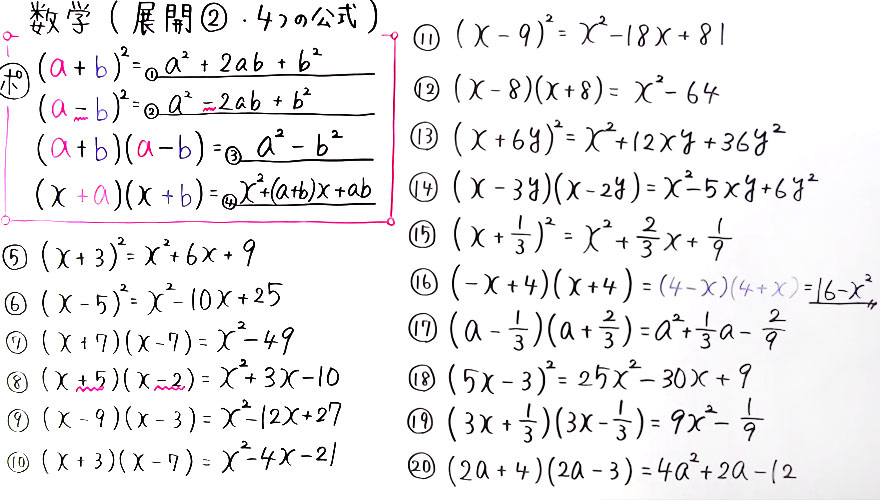 数学(展開②・4つの公式)
ポ
(a+b)²=①a²+2ab+b²
(a-b)²=②a²-2ab+b²
(a+b)(a-b)=③a²-b²
(x+a)(x+b)=④x²+(a+b)x+ab
⑤(x+3)²=x²+6x+9
⑥(x-5)²=x²-10x+25
⑦(x+7)(x-7)=x²-49
⑧(x+5)(x-2)=x²+3x-10
⑨(x-9)(x-3)=x²-12x+27
⑩(x+3)(x-7)=x²-4x-21
⑪(x-9)²=x²-18x+81
⑫(x-8)(x+8)=x²-64
⑬(x+6y)²=x²+12xy+36y²
⑭(x-3y)(x-2y)=x²-5xy+6y²
⑮(x+1/3)²=x²+2/3x+1/9
⑯(-x+4)(x+4)=(4-x)(4+x)=16-x²
⑰(a-1/3)(a+2/3)=a²+1/3a-2/9
⑱(5x-3)²=25x²-30x+9
⑲(3x+1/3)(3x-1/3)=9x²-1/9
⑳(2a+4)(2a-3)=4a²+2a-12